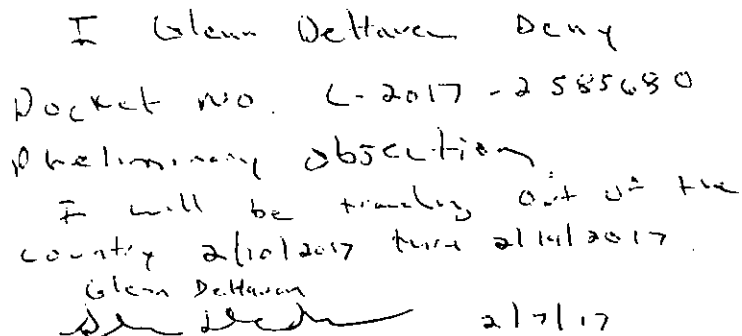 I Glenn DeHaven Deny
Docket No. C-2017-2585680
Pheliminary Objection
I will be traveling out of the
country 2/10/2017 thru 2/14/2017.
Glenn DeHaven
2/7/17